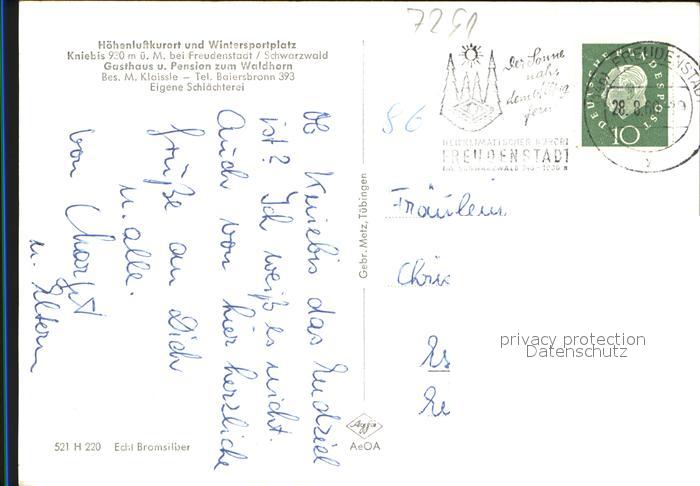 7291
Höhenluftkurort und Wintersportplatz
Kniebis 930 m ü. M. bei Freudenstadt / Schwarzwald
Gasthaus u. Pension zum Waldhorn
Bes. M. Klaissle – Tel. Baiersbronn 393
Eigene Schlächterei
Ob Kniebis das Endziel
ist? Ich weiß es nicht.
Auch von hier herzliche
Grüße an Dich
u. alle.
von Margit
u. Eltern
521 H 220 Echt Bromsilber
Gebr. Metz, Tübingen
Agfa
AeOA
Der Sonne
nah,
dem Alltag
fern
HEILKLIMATISCHER KURORT
FREUDENSTADT
IM SCHWARZWALD
FREUDENSTADT
28.8.60
DEUTSCHE BUNDESPOST
10
Fräulein
privacy protection
Datenschutz